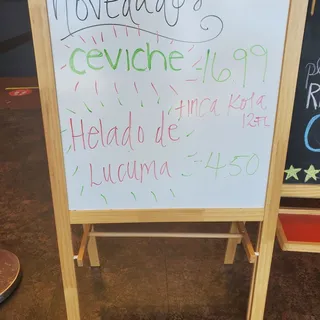 Novedades
ceviche - 1699
+Inca Kola
12oz
Helado de
Lucuma - 450